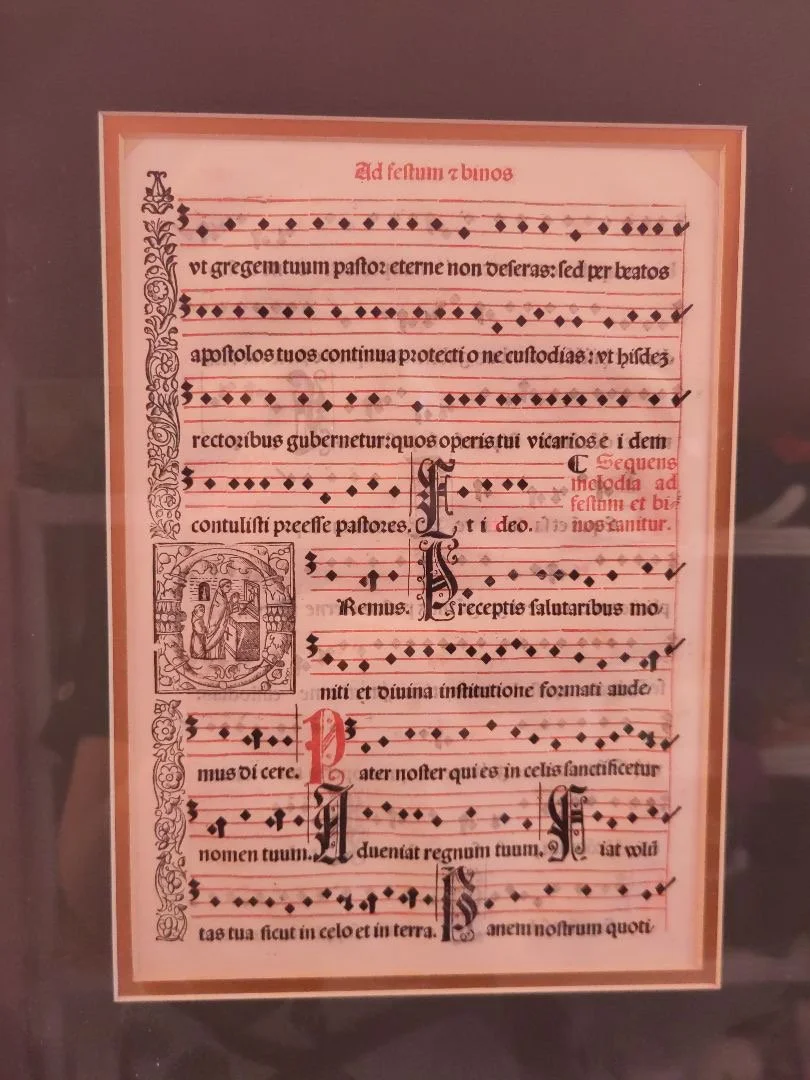 Ad festum ⁊ binos
vt gregem tuum pastoꝛ eterne non deseras: sed per beatos
apostolos tuos continua pꝛotecti o ne custodias: vt hisdeꝫ
rectoꝛibus gubernetur: quos operis tui vicarios e i dem
contulisti preesse pastores. E t i deo.
C Sequens
melodia ad
festum et bi⸗
nos canitur.
O Remus. P receptis salutaribus mo
niti et diuina institutione foꝛmati aude
mus di cere. P ater noster qui es in celis sanctificetur
nomen tuum. A dueniat regnum tuum. F iat volū
tas tua sicut in celo et in terra. P anem nostrum quoti